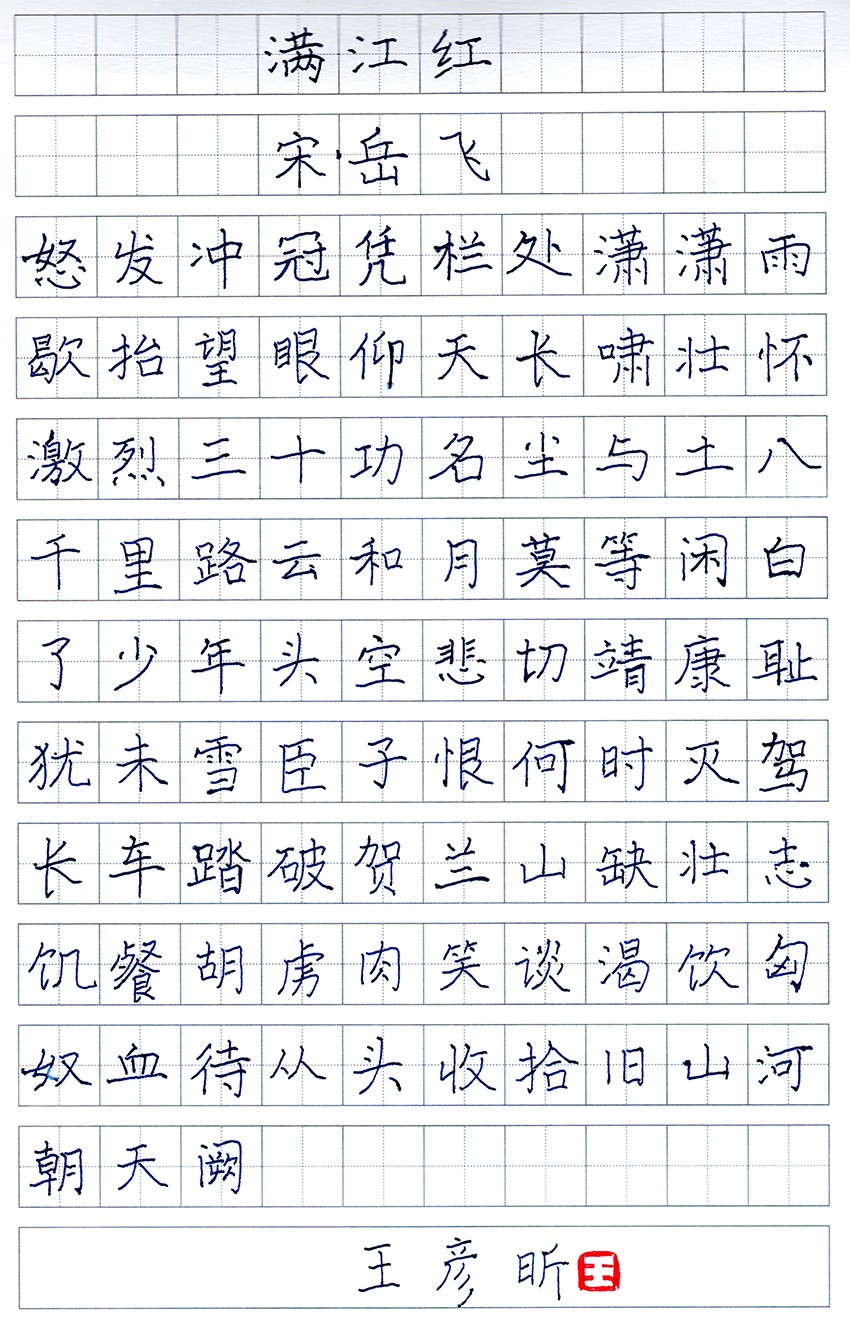 满江红
宋·岳飞
怒发冲冠凭栏处潇潇雨
歇抬望眼仰天长啸壮怀
激烈三十功名尘与土八
千里路云和月莫等闲白
了少年头空悲切靖康耻
犹未雪臣子恨何时灭驾
长车踏破贺兰山缺壮志
饥餐胡虏肉笑谈渴饮匈
奴血待从头收拾旧山河
朝天阙
王彦昕 王